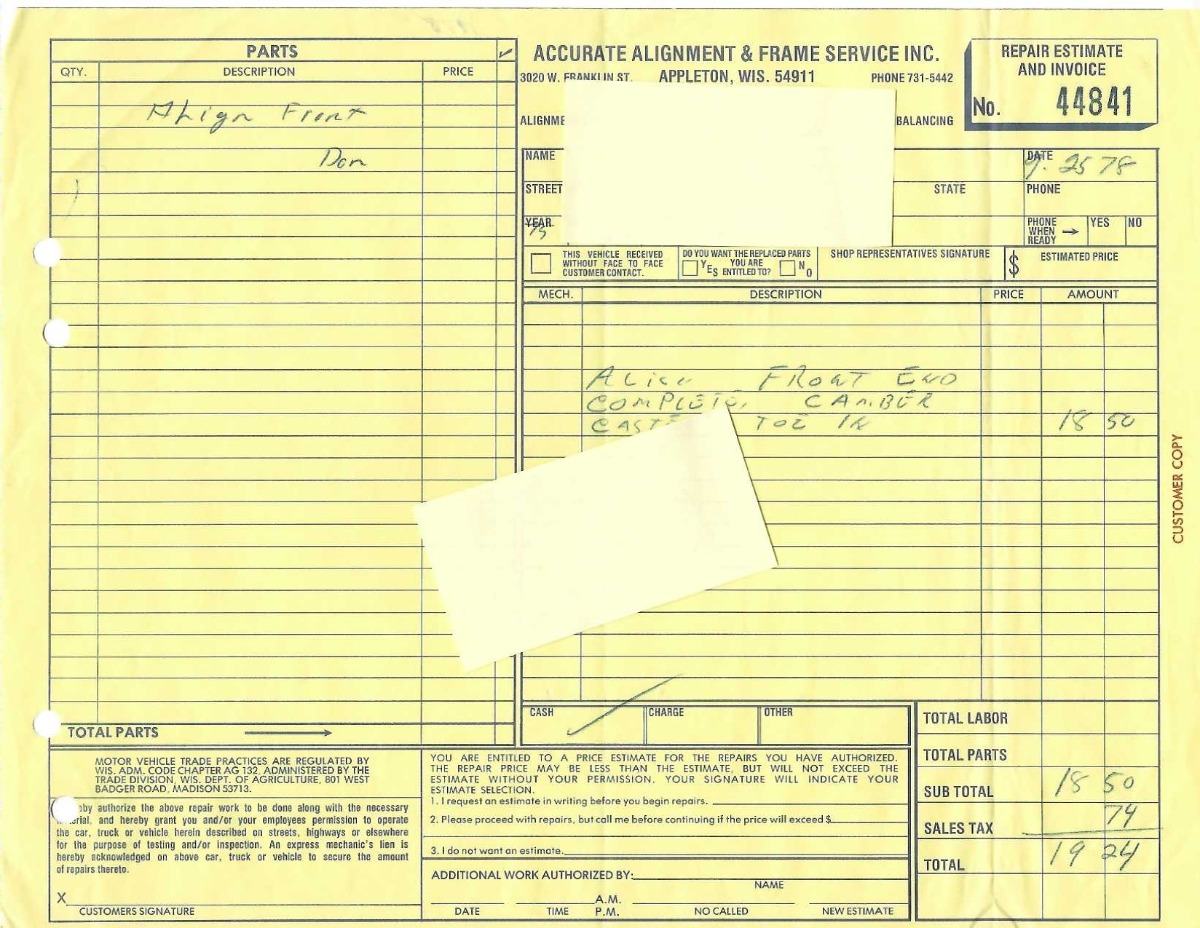 PARTS
QTY. DESCRIPTION PRICE ✓
Align Front
Don
TOTAL PARTS
ACCURATE ALIGNMENT & FRAME SERVICE INC.
3020 W. FRANKLIN ST. APPLETON, WIS. 54911 PHONE 731-5442
BALANCING
REPAIR ESTIMATE
AND INVOICE
No. 44841
NAME DATE 9. 25 78
STREET STATE PHONE
YEAR PHONE WHEN READY → YES NO
75
THIS VEHICLE RECEIVED
WITHOUT FACE TO FACE
CUSTOMER CONTACT.
DO YOU WANT THE REPLACED PARTS
YES YOU ARE ENTITLED TO? NO
SHOP REPRESENTATIVES SIGNATURE
$ ESTIMATED PRICE
MECH. DESCRIPTION PRICE AMOUNT
ALIGN FRONT END
COMPLETE, CAMBER
TOE IN 18 50
CUSTOMER COPY
CASH CHARGE OTHER
TOTAL LABOR
TOTAL PARTS
SUB TOTAL 18 50
SALES TAX 74
TOTAL 19 24
MOTOR VEHICLE TRADE PRACTICES ARE REGULATED BY
WIS. ADM. CODE CHAPTER AG 132, ADMINISTERED BY THE
TRADE DIVISION, WIS. DEPT. OF AGRICULTURE, 801 WEST
BADGER ROAD, MADISON 53713.
authorize the above repair work to be done along with the necessary
and hereby grant you and/or your employees permission to operate
the car, truck or vehicle herein described on streets, highways or elsewhere
for the purpose of testing and/or inspection. An express mechanic's lien is
hereby acknowledged on above car, truck or vehicle to secure the amount
of repairs thereto.
X
CUSTOMERS SIGNATURE
YOU ARE ENTITLED TO A PRICE ESTIMATE FOR THE REPAIRS YOU HAVE AUTHORIZED.
THE REPAIR PRICE MAY BE LESS THAN THE ESTIMATE, BUT WILL NOT EXCEED THE
ESTIMATE WITHOUT YOUR PERMISSION. YOUR SIGNATURE WILL INDICATE YOUR
ESTIMATE SELECTION.
1. I request an estimate in writing before you begin repairs.
2. Please proceed with repairs, but call me before continuing if the price will exceed $
3. I do not want an estimate.
ADDITIONAL WORK AUTHORIZED BY:
NAME
A.M.
DATE TIME P.M. NO CALLED NEW ESTIMATE